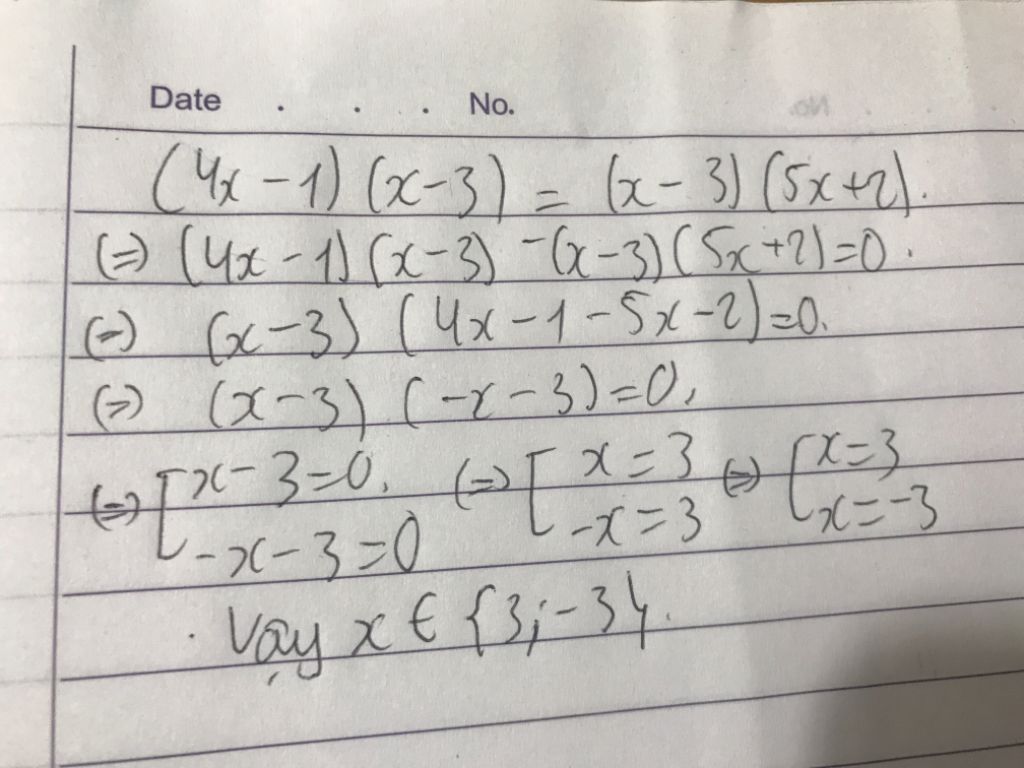 Date . . . No.
(4x-1)(x-3) = (x-3)(5x+2).
(=) (4x-1)(x-3) -(x-3)(5x+2)=0.
(=) (x-3) (4x-1-5x-2)=0.
(=) (x-3) (-x-3)=0.
(=) [ x-3=0. (=) [ x=3 (=) [ x=3
-x-3=0 -x=3 x=-3
. Vậy x ∈ {3;-3}.